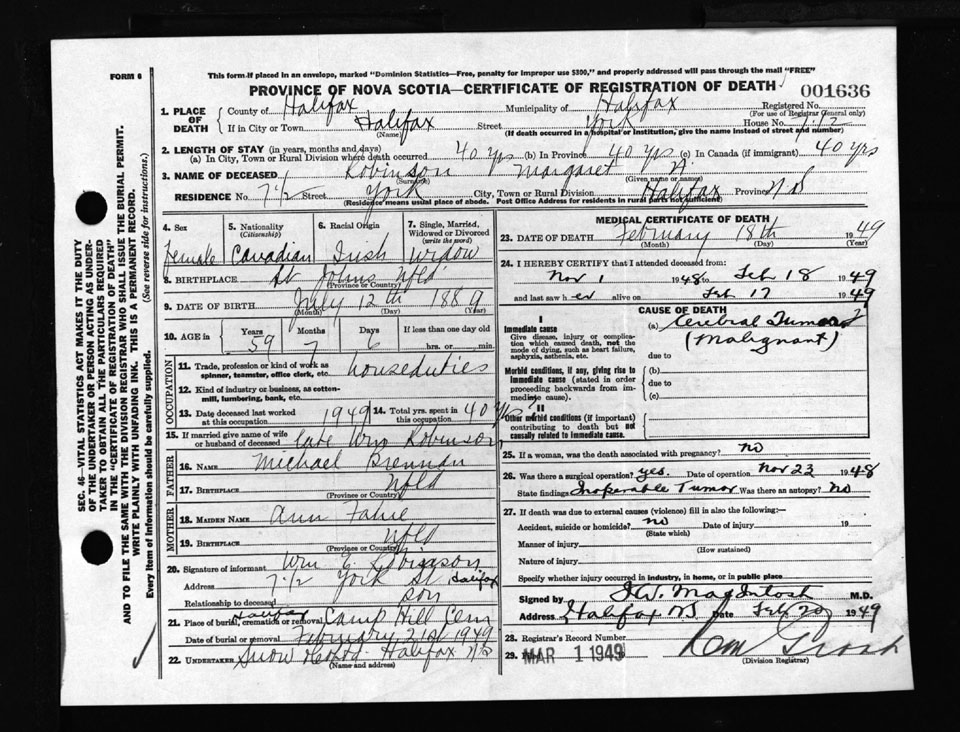 FORM 6
This form if placed in an envelope, marked "Dominion Statistics—Free, penalty for improper use $300," and properly addressed will pass through the mail "FREE"
PROVINCE OF NOVA SCOTIA—CERTIFICATE OF REGISTRATION OF DEATH
001636
1. PLACE OF DEATH County of Halifax Municipality of Halifax Registered No.
(For use of Registrar General only)
If in City or Town Halifax Street York House No. 7 1/2
(Name) (If death occurred in a hospital or institution, give the name instead of street and number)
2. LENGTH OF STAY (in years, months and days)
(a) In City, Town or Rural Division where death occurred 40 yrs (b) In Province 40 yrs (c) In Canada (if immigrant) 40 yrs
3. NAME OF DECEASED Robinson Margaret A
(Surname) (Given name or names)
RESIDENCE No 7 1/2 Street York City, Town or Rural Division Halifax Province N S
(Residence means usual place of abode. Post Office Address for residents in rural parts not sufficient)
4. Sex 5. Nationality (Citizenship) 6. Racial Origin 7. Single, Married, Widowed or Divorced (write the word)
Female Canadian Irish Widow
8. BIRTHPLACE St Johns Nfld
(Province or Country)
9. DATE OF BIRTH July 12th 1889
(Month) (Day) (Year)
10. AGE in Years Months Days If less than one day old
59 7 6 hrs. or min.
OCCUPATION
11. Trade, profession or kind of work as spinner, teamster, office clerk, etc. houseduties
12. Kind of industry or business, as cotton-mill, lumbering, bank, etc.
13. Date deceased last worked at this occupation 1949 14. Total yrs. spent in this occupation 40 yrs
15. If married give name of wife or husband of deceased late Wm Robinson
FATHER
16. NAME Michael Brennan
17. BIRTHPLACE Nfld
(Province or Country)
MOTHER
18. MAIDEN NAME Ann
19. BIRTHPLACE Nfld
(Province or Country)
20. Signature of informant Wm E. Robinson
Address 7 1/2 York St Halifax
Relationship to deceased son
21. Place of burial, cremation or removal Halifax Camp Hill Cem
Date of burial or removal February 21st 1949
22. UNDERTAKER Snow Halifax N S
(Name and address)
MEDICAL CERTIFICATE OF DEATH
23. DATE OF DEATH February 18th 1949
(Month) (Day) (Year)
24. I HEREBY CERTIFY that I attended deceased from:
Nov 1 1948 to Feb 18 1949
and last saw her alive on Feb 17 1949
CAUSE OF DEATH
I
Immediate cause
Give disease, injury or complication which caused death, not the mode of dying, such as heart failure, asphyxia, asthenia, etc.
(a) Cerebral Tumor
(Malignant)
due to
Morbid conditions, if any, giving rise to immediate cause (stated in order proceeding backwards from immediate cause).
(b)
due to
(c)
II
Other morbid conditions (if important) contributing to death but not causally related to immediate cause.
25. If a woman, was the death associated with pregnancy? no
26. Was there a surgical operation? yes. Date of operation Nov 23 1948
State findings Inoperable Tumor Was there an autopsy? No
27. If death was due to external causes (violence) fill in also the following:—
Accident, suicide or homicide? no Date of injury 19
(State which)
Manner of injury
(How sustained)
Nature of injury
Specify whether injury occurred in industry, in home, or in public place
Signed by MacIntosh M.D.
Address Halifax NS Date Feb 20 1949
28. Registrar's Record Number
29. MAR 1 1949
(Division Registrar)
SEC. 46—VITAL STATISTICS ACT MAKES IT THE DUTY
OF THE UNDERTAKER OR PERSON ACTING AS UNDERTAKER TO OBTAIN ALL THE PARTICULARS REQUIRED
IN THE "CERTIFICATE OF REGISTRATION OF DEATH"
AND TO FILE THE SAME WITH THE DIVISION REGISTRAR WHO SHALL ISSUE THE BURIAL PERMIT.
WRITE PLAINLY WITH UNFADING INK. THIS IS A PERMANENT RECORD.
Every item of information should be carefully supplied. (See reverse side for instructions.)